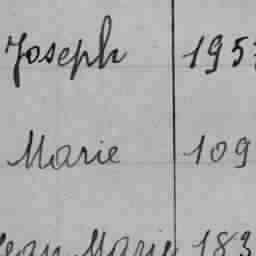 Joseph 195
Marie 109
Jean Marie 183